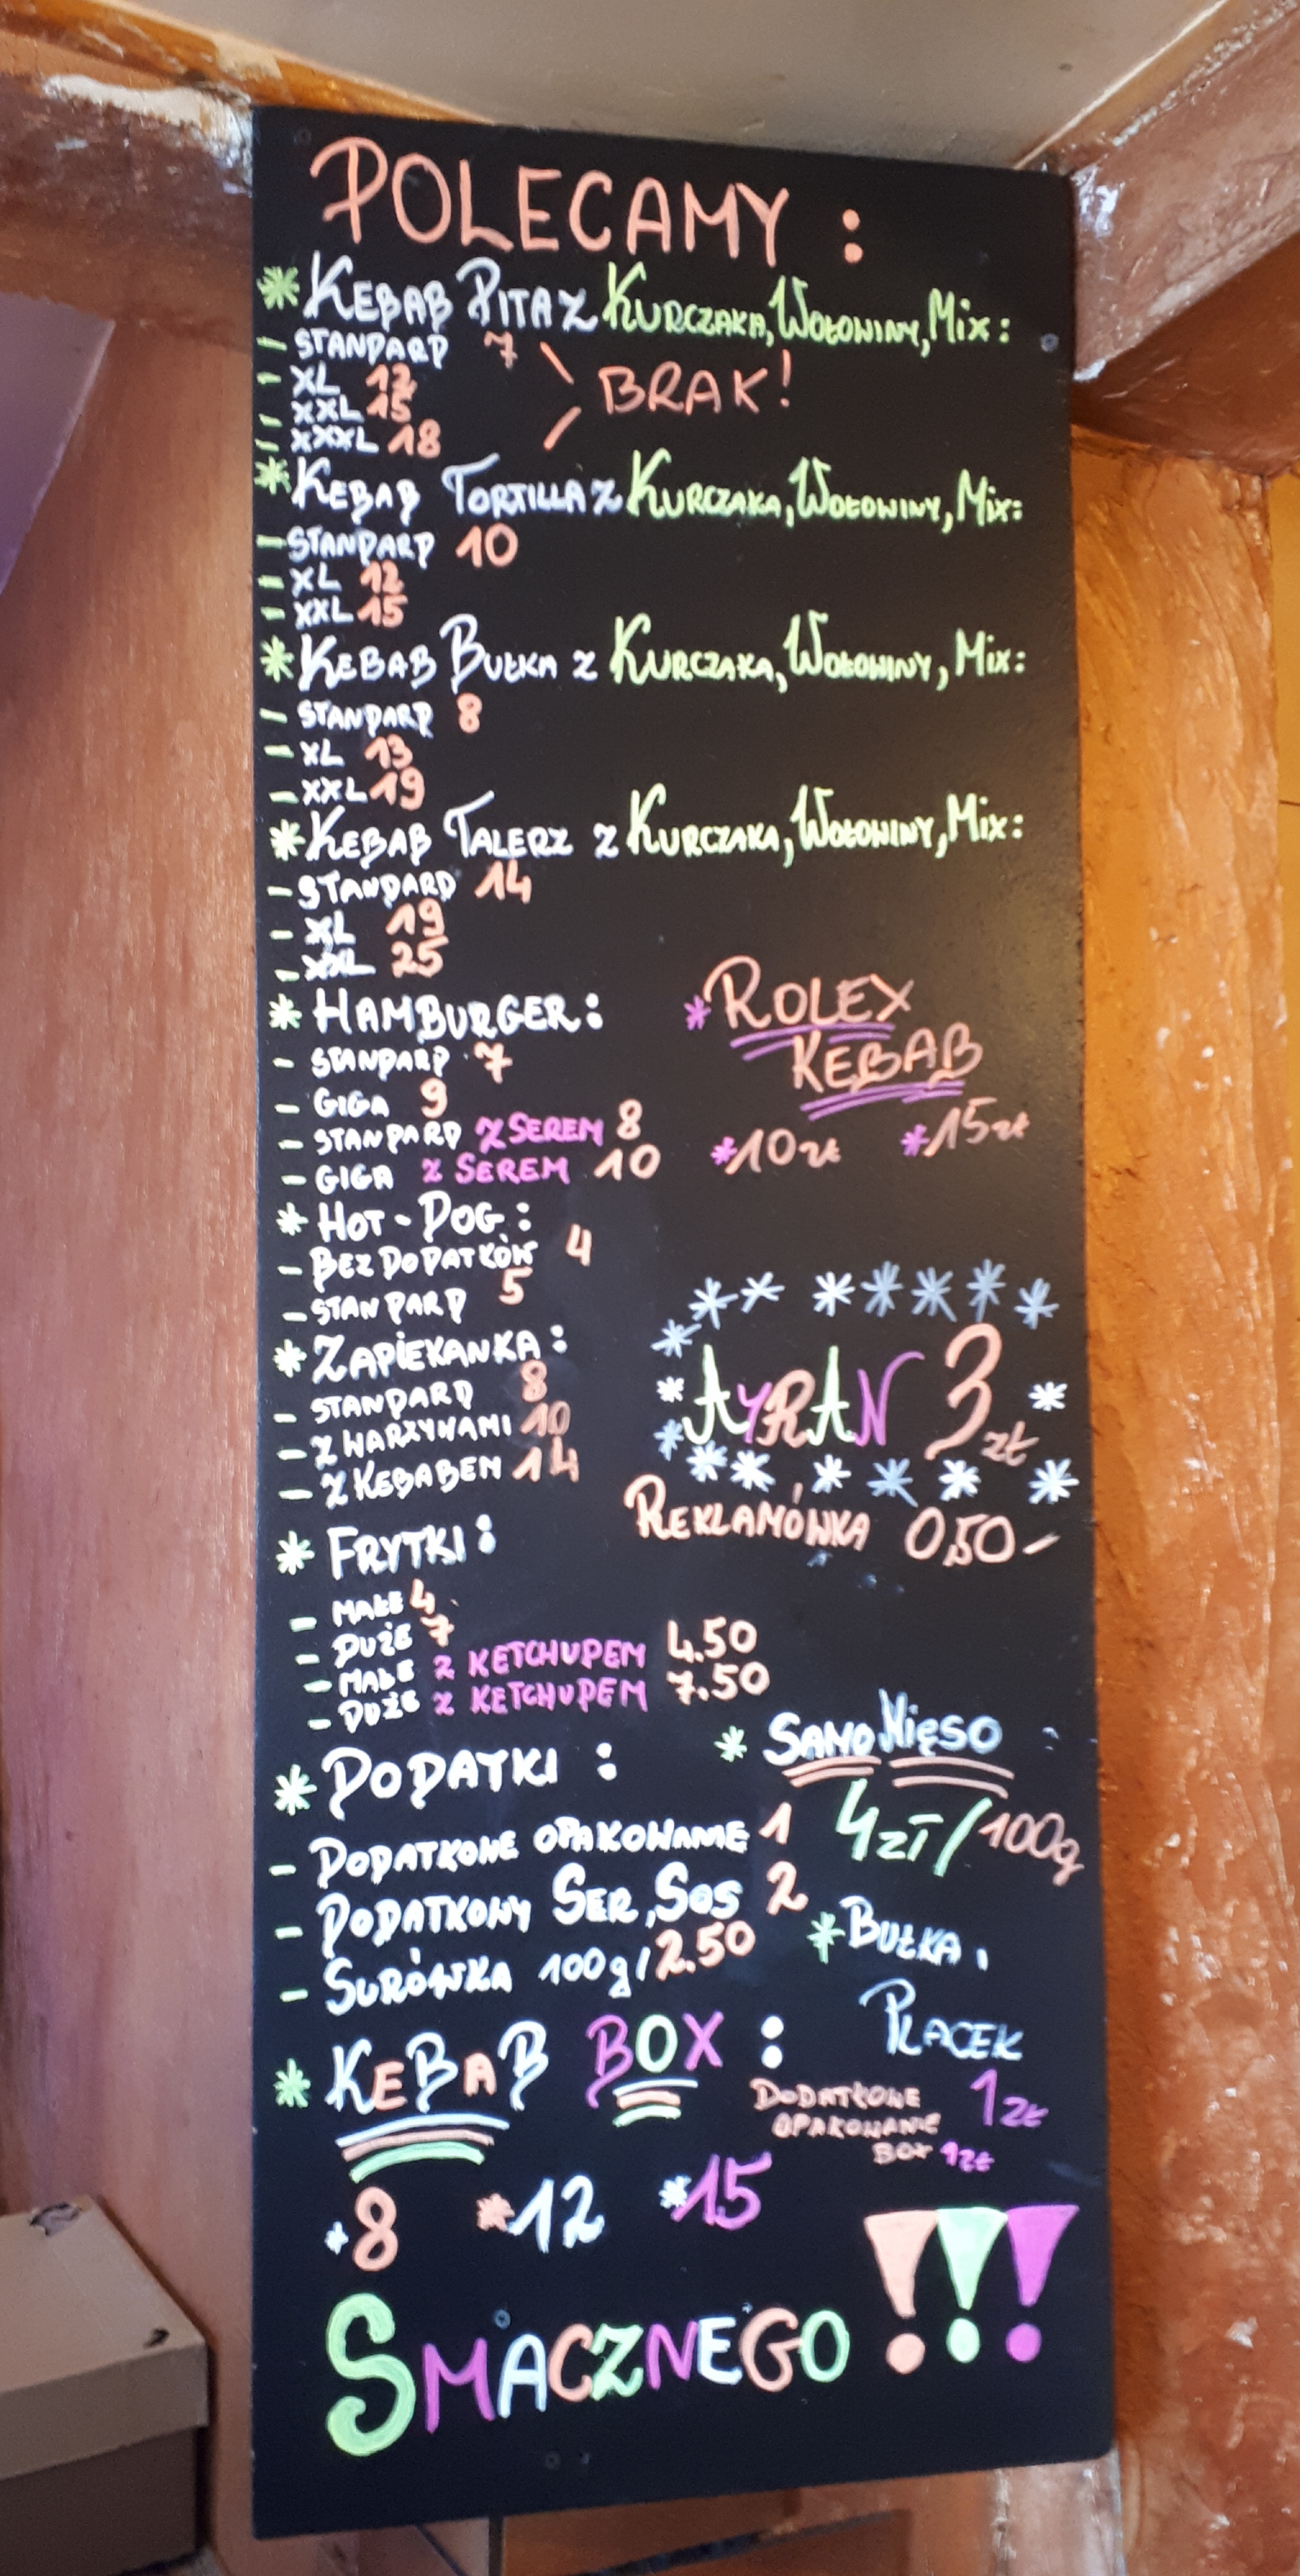 POLECAMY :
* KEBAB PITA Z KURCZAKA, WOŁOWINY, MIX:
- STANDARD 7
- XL 12
- XXL 15
- XXXL 18
BRAK!
* KEBAB TORTILLA Z KURCZAKA, WOŁOWINY, MIX:
- STANDARD 10
- XL 12
- XXL 15
* KEBAB BUŁKA Z KURCZAKA, WOŁOWINY, MIX:
- STANDARD 8
- XL 13
- XXL 19
* KEBAB TALERZ Z KURCZAKA, WOŁOWINY, MIX:
- STANDARD 14
- XL 19
- XXL 25
* HAMBURGER:
- STANDARD 7
- GIGA 9
- STANDARD Z SEREM 8
- GIGA Z SEREM 10
* ROLEX
KEBAB
* 10 zł * 15 zł
* HOT-DOG:
- BEZ DODATKÓW 4
- STANDARD 5
* ZAPIEKANKA:
- STANDARD 8
- Z WARZYWAMI 10
- Z KEBABEM 14
AYRAN 3 zł
REKLAMÓWKA 0,50-
* FRYTKI:
- MAŁE 4
- DUŻE 7
- MAŁE Z KETCHUPEM 4.50
- DUŻE Z KETCHUPEM 7.50
* DODATKI :
- DODATKOWE OPAKOWANIE 1
- DODATKOWY SER, SOS 2
- SURÓWKA 100g/2.50
* SAMO MIĘSO
4 zł/100g
* BUŁKA,
PLACEK
1 zł
* KEBAB BOX :
DODATKOWE
OPAKOWANIE
BOX 1 zł
* 8 * 12 * 15
SMACZNEGO !!!